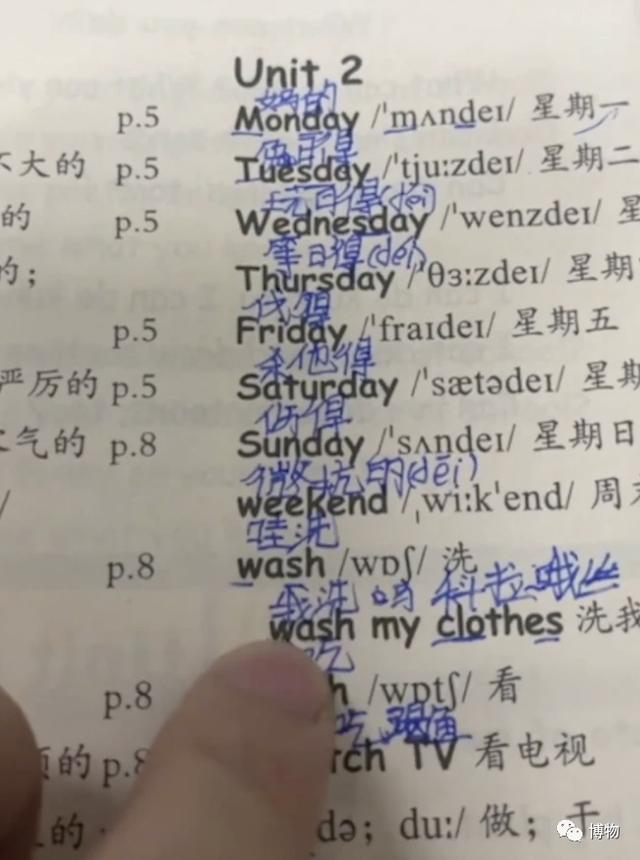 Unit 2
妈的
p.5 Monday /ˈmʌndeɪ/ 星期一
不大的 p.5 Tuesday /ˈtjuːzdeɪ/ 星期二
日得(dei)
的 p.5 Wednesday /ˈwenzdeɪ/ 星
日得(děi)
的; Thursday /ˈθɜːzdeɪ/ 星期
得
p.5 Friday /ˈfraɪdeɪ/ 星期五
杀他得
严厉的 p.5 Saturday /ˈsætədeɪ/ 星期
得
气的 p.8 Sunday /ˈsʌndeɪ/ 星期日
微 (dēi)
/ weekend /ˌwiːkˈend/ 周末
哇洗
p.8 wash /wɒʃ/ 洗
洗 科拉
wash my clothes 洗我
吃
p.8 h /wɒtʃ/ 看
吃
的 p.8 tch TV 看电视
的 də; duː/ 做; 干
博物